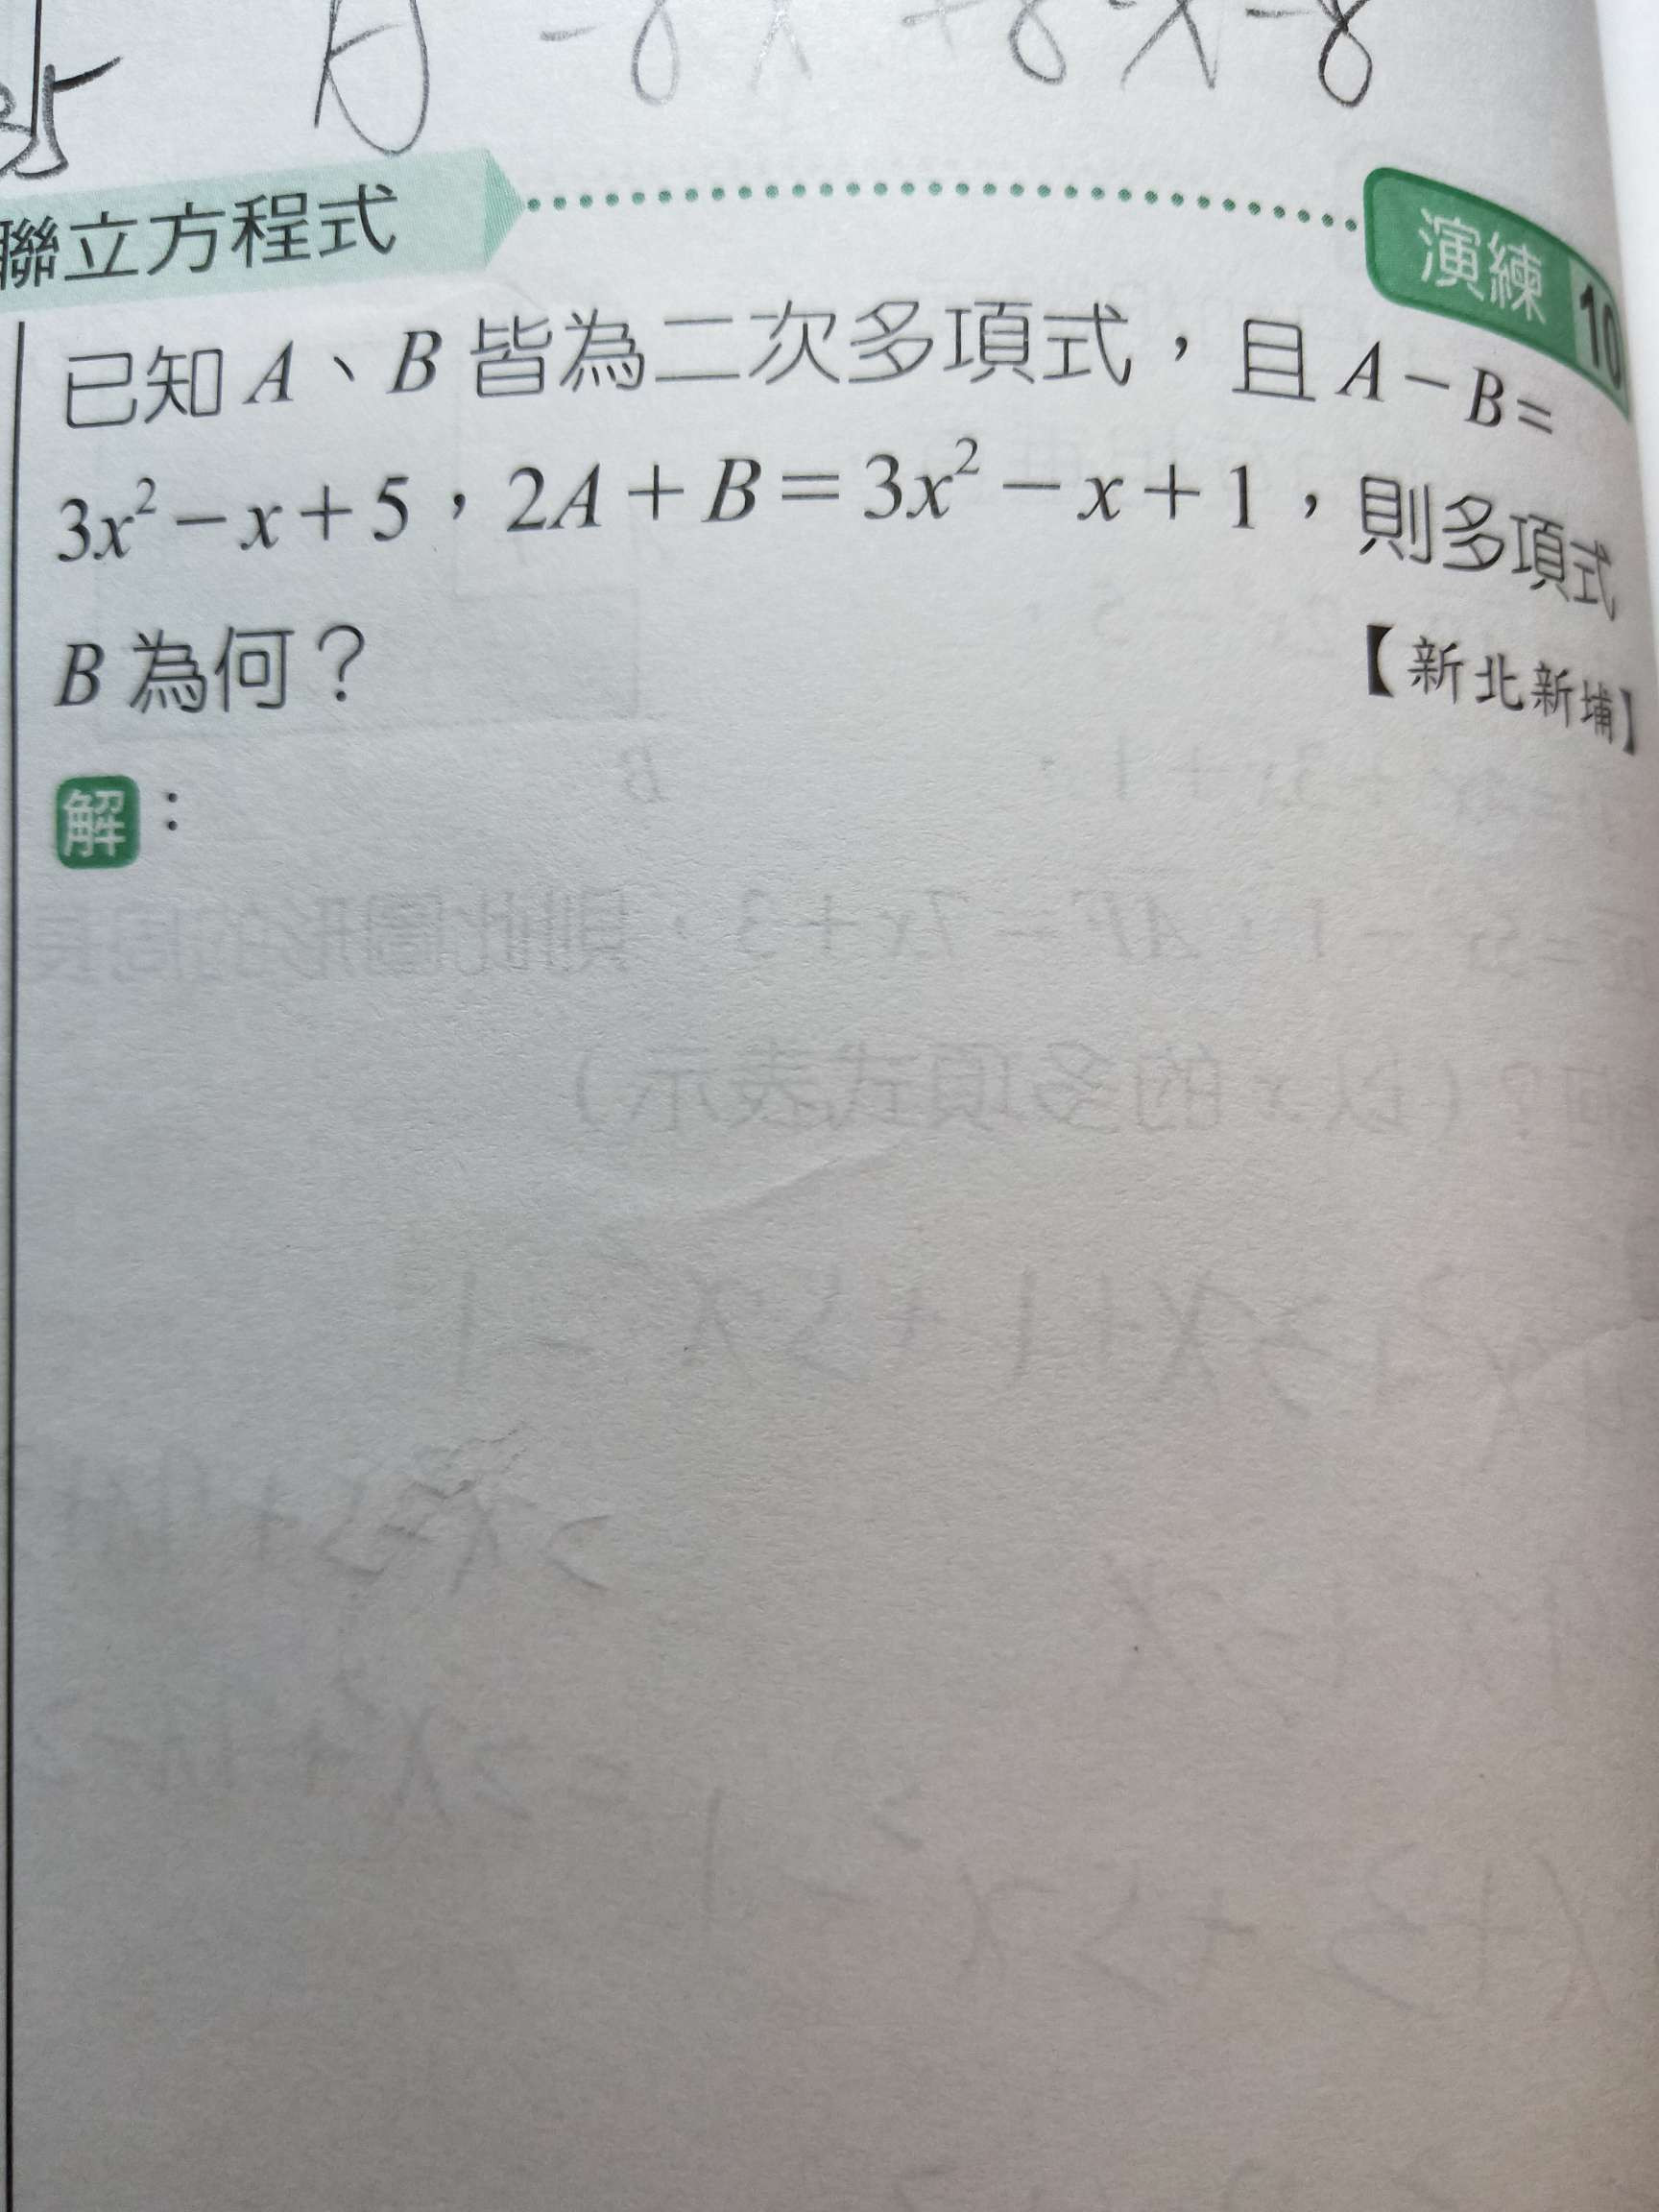 35 A -8x +8x-8
聯立方程式 演練 10
已知 A、B 皆為二次多項式，且 A－B＝
3x²－x＋5，2A＋B＝3x²－x＋1，則多項式
B 為何？ 【新北新埔】
解：